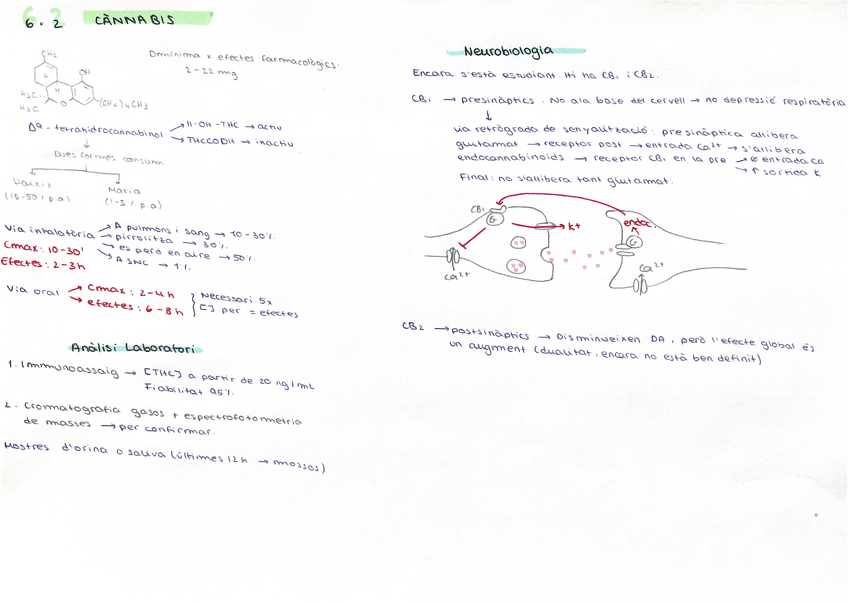 6.2 CÀNNABIS
CH3
OH
H
H
H3C
H3C
O
(CH2)4CH3
D mínima x efectes farmacològics:
2-22 mg
Δ9- tetrahidrocannabinol → 11-OH-THC → actiu
→ THCCOOH → inactiu
Dues formes consum
Haixix
(15-50% p.a)
Maria
(1-5% p.a)
Via inhalatòria → A pulmons i sang → 10-30%.
→ pirrolitza → 30%.
→ es perd en aire → 50%.
→ A SNC → 1%.
Cmax: 10-30'
Efectes: 2-3h
Via oral → Cmax: 2-4h
→ efectes: 6-8h
Necessari 5x
[] per = efectes
Anàlisi Laboratori
1. Immunoassaig → [THC] a partir de 20 ng/mL
Fiabilitat 95%.
2. Cromatografia gasos + espectrofotometria
de masses → per confirmar.
Mostres d'orina o saliva (últimes 12h → mossos)
Neurobiologia
Encara s'està estudiant. Hi ha CB1 i CB2.
CB1 → presinàptics. No a la base del cervell → no depressió respiratòria
↓
via retrògrada de senyalització: presinàptica allibera
glutamat → receptor post → entrada Ca2+ → s'allibera
endocannabinoids → receptor CB1 en la pre → ⊘ entrada Ca
→ ↑ sortida K
Final: no s'allibera tant glutamat.
CB1
G
K+
endoc.
G
Ca2+
Ca2+
CB2 → postsinàptics → Disminueixen DA, però l'efecte global és
un augment (dualitat, encara no està ben definit)